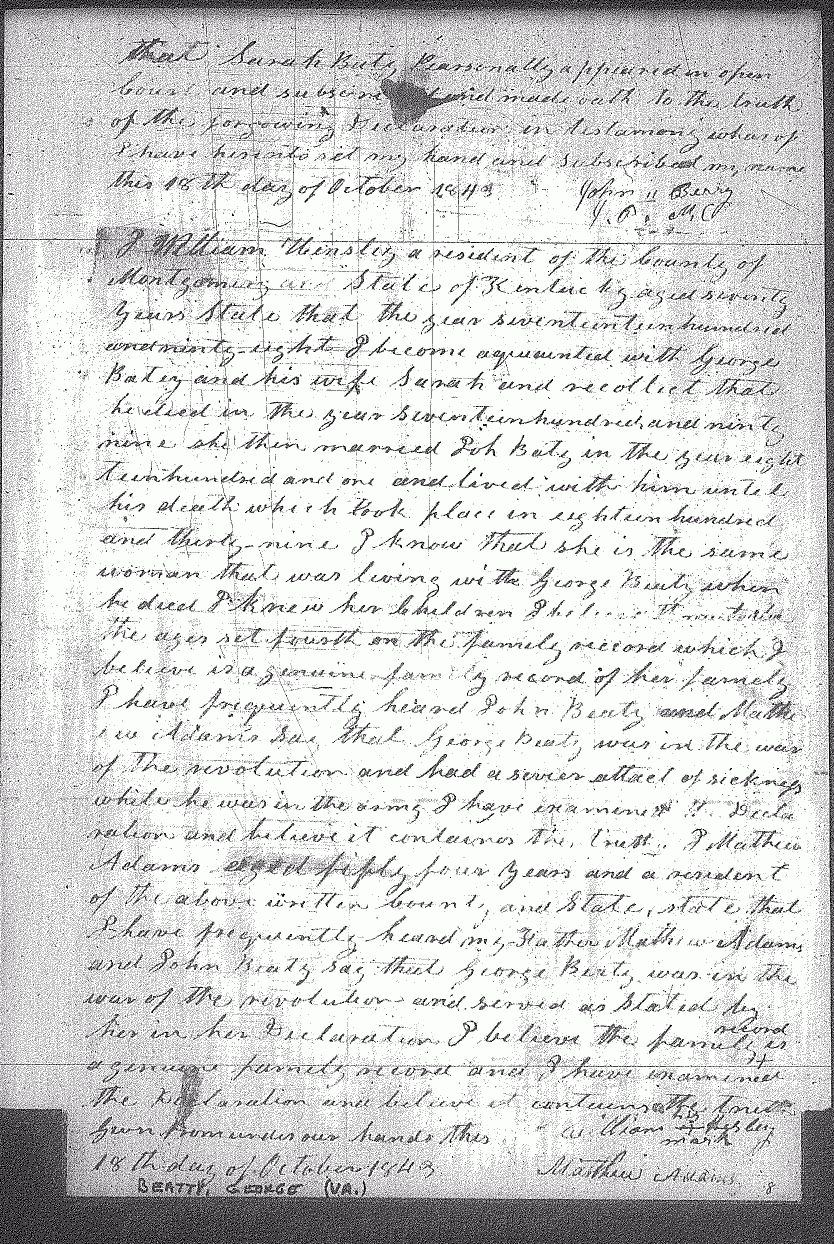 that Sarah Baty Pearsonally appeared in open
Court and subscri and made oath to the truth
of the forgowing Declaration in testamony wharof
I have hereinto set my hand and subscribed my name
this 18th day of October 1843 John Berry
J. P. M C
I William Hensley a resident of the County of
Montgomery and State of Kentucky aged seventy
Years State that the year seventeinteenhundred
and ninty-eight I become aquainted with George
Baty and his wife Sarah and recollect that
he died in the year seventeenhundred and ninty
nine she then married Joh Baty in the year eight
teenhundred and one and lived with him until
his death which took place in eighteen hundred
and thirty-nine I know that she is the same
woman that was living with George Beaty when
he died I knew her Children
the ages set fourth on the family record which I
believe is a genuine family record of her family
I have frequently heard John Beaty and Mathe
ew Adams say that George Beaty was in the war
of the revolution and had a sevier attact of sickness
while he was in the army I have examined Decla
ration and believe it containes the truth. I Mathew
Adams aged fifty four Years and a resident
of the above written County and State, state that
I have frequently heard my Father Mathew Adams
and John Beaty say that George Beaty was in the
war of the revolution and served as Stated by
her in her Declaration I believe the family record is
a genuine family record and I have examined
the Declaration and believe it contains the truth
Given from under our hands this William his + Hensley
mark
18th day of October 1843 Matthew Adams
BEATTY, GEORGE (VA.)
8